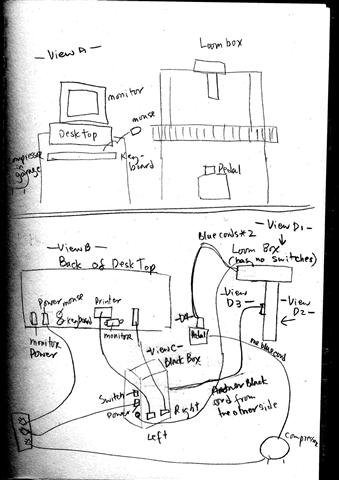 - View A -
Loom box
monitor
mouse
Desk Top
compressor
in
garage
Key-
board
Pedal
- View B -
Back of Desk Top
Blue cords*2
- View D1 -
Loom Box
(has no switches)
Power
mouse
keyboard
Printer
monitor
monitor
Power
- View
D3 -
- View
D2 -
no blue cord
- D4 -
Pedal
- View C -
Black Box
Switch
Power
Left
Right
Another Black
cord from
the other side
compressor